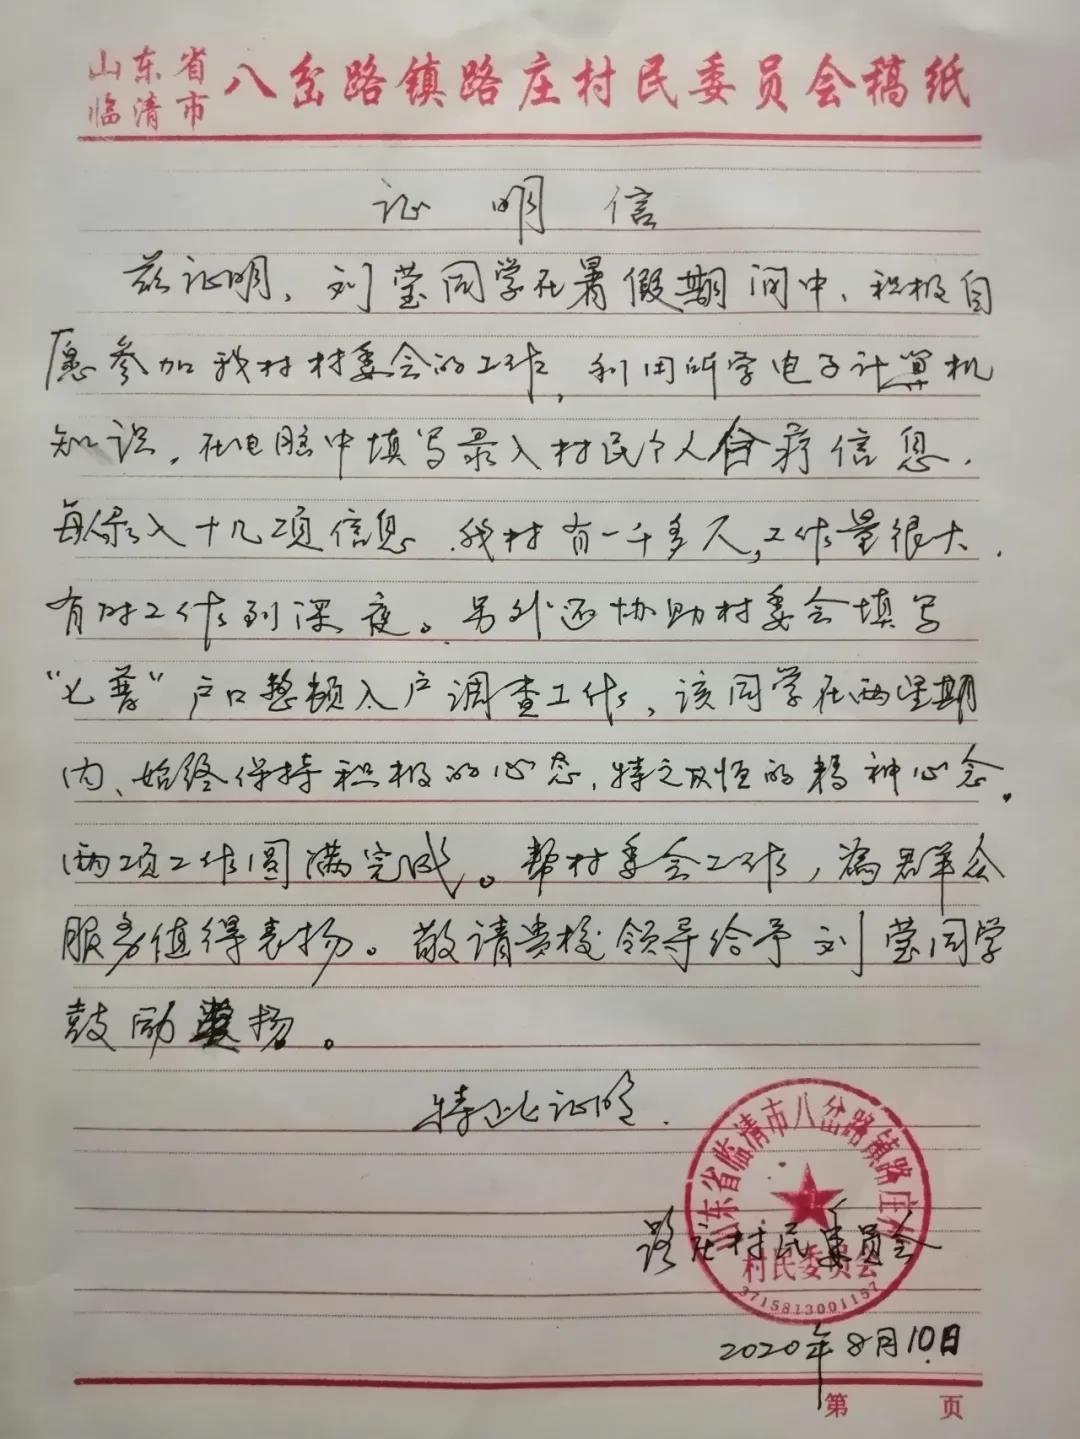 山东省
临清市
八岔路镇路庄村民委员会稿纸
证明信
兹证明，刘莹同学在暑假期间中，积极自
愿参加我村村委会的工作，利用所学电子计算机
知识，在电脑中填写录入村民个人合疗信息，
每录入十几项信息，我村有一千多人，工作量很大，
有时工作到深夜。另外还协助村委会填写
“七普”户口整顿入户调查工作，该同学在两星期
内、始终保持积极的心态，持之以恒的精神心念，
两项工作圆满完成。帮村委会工作，為君羊众
服务值得表扬。敬请贵校领导给予刘莹同学
鼓励奖扬。
特此证明.
山东省临清市八岔路镇路庄村
村民委员会
3715813001157
路庄村民委员会
2020年8月10日
第 页